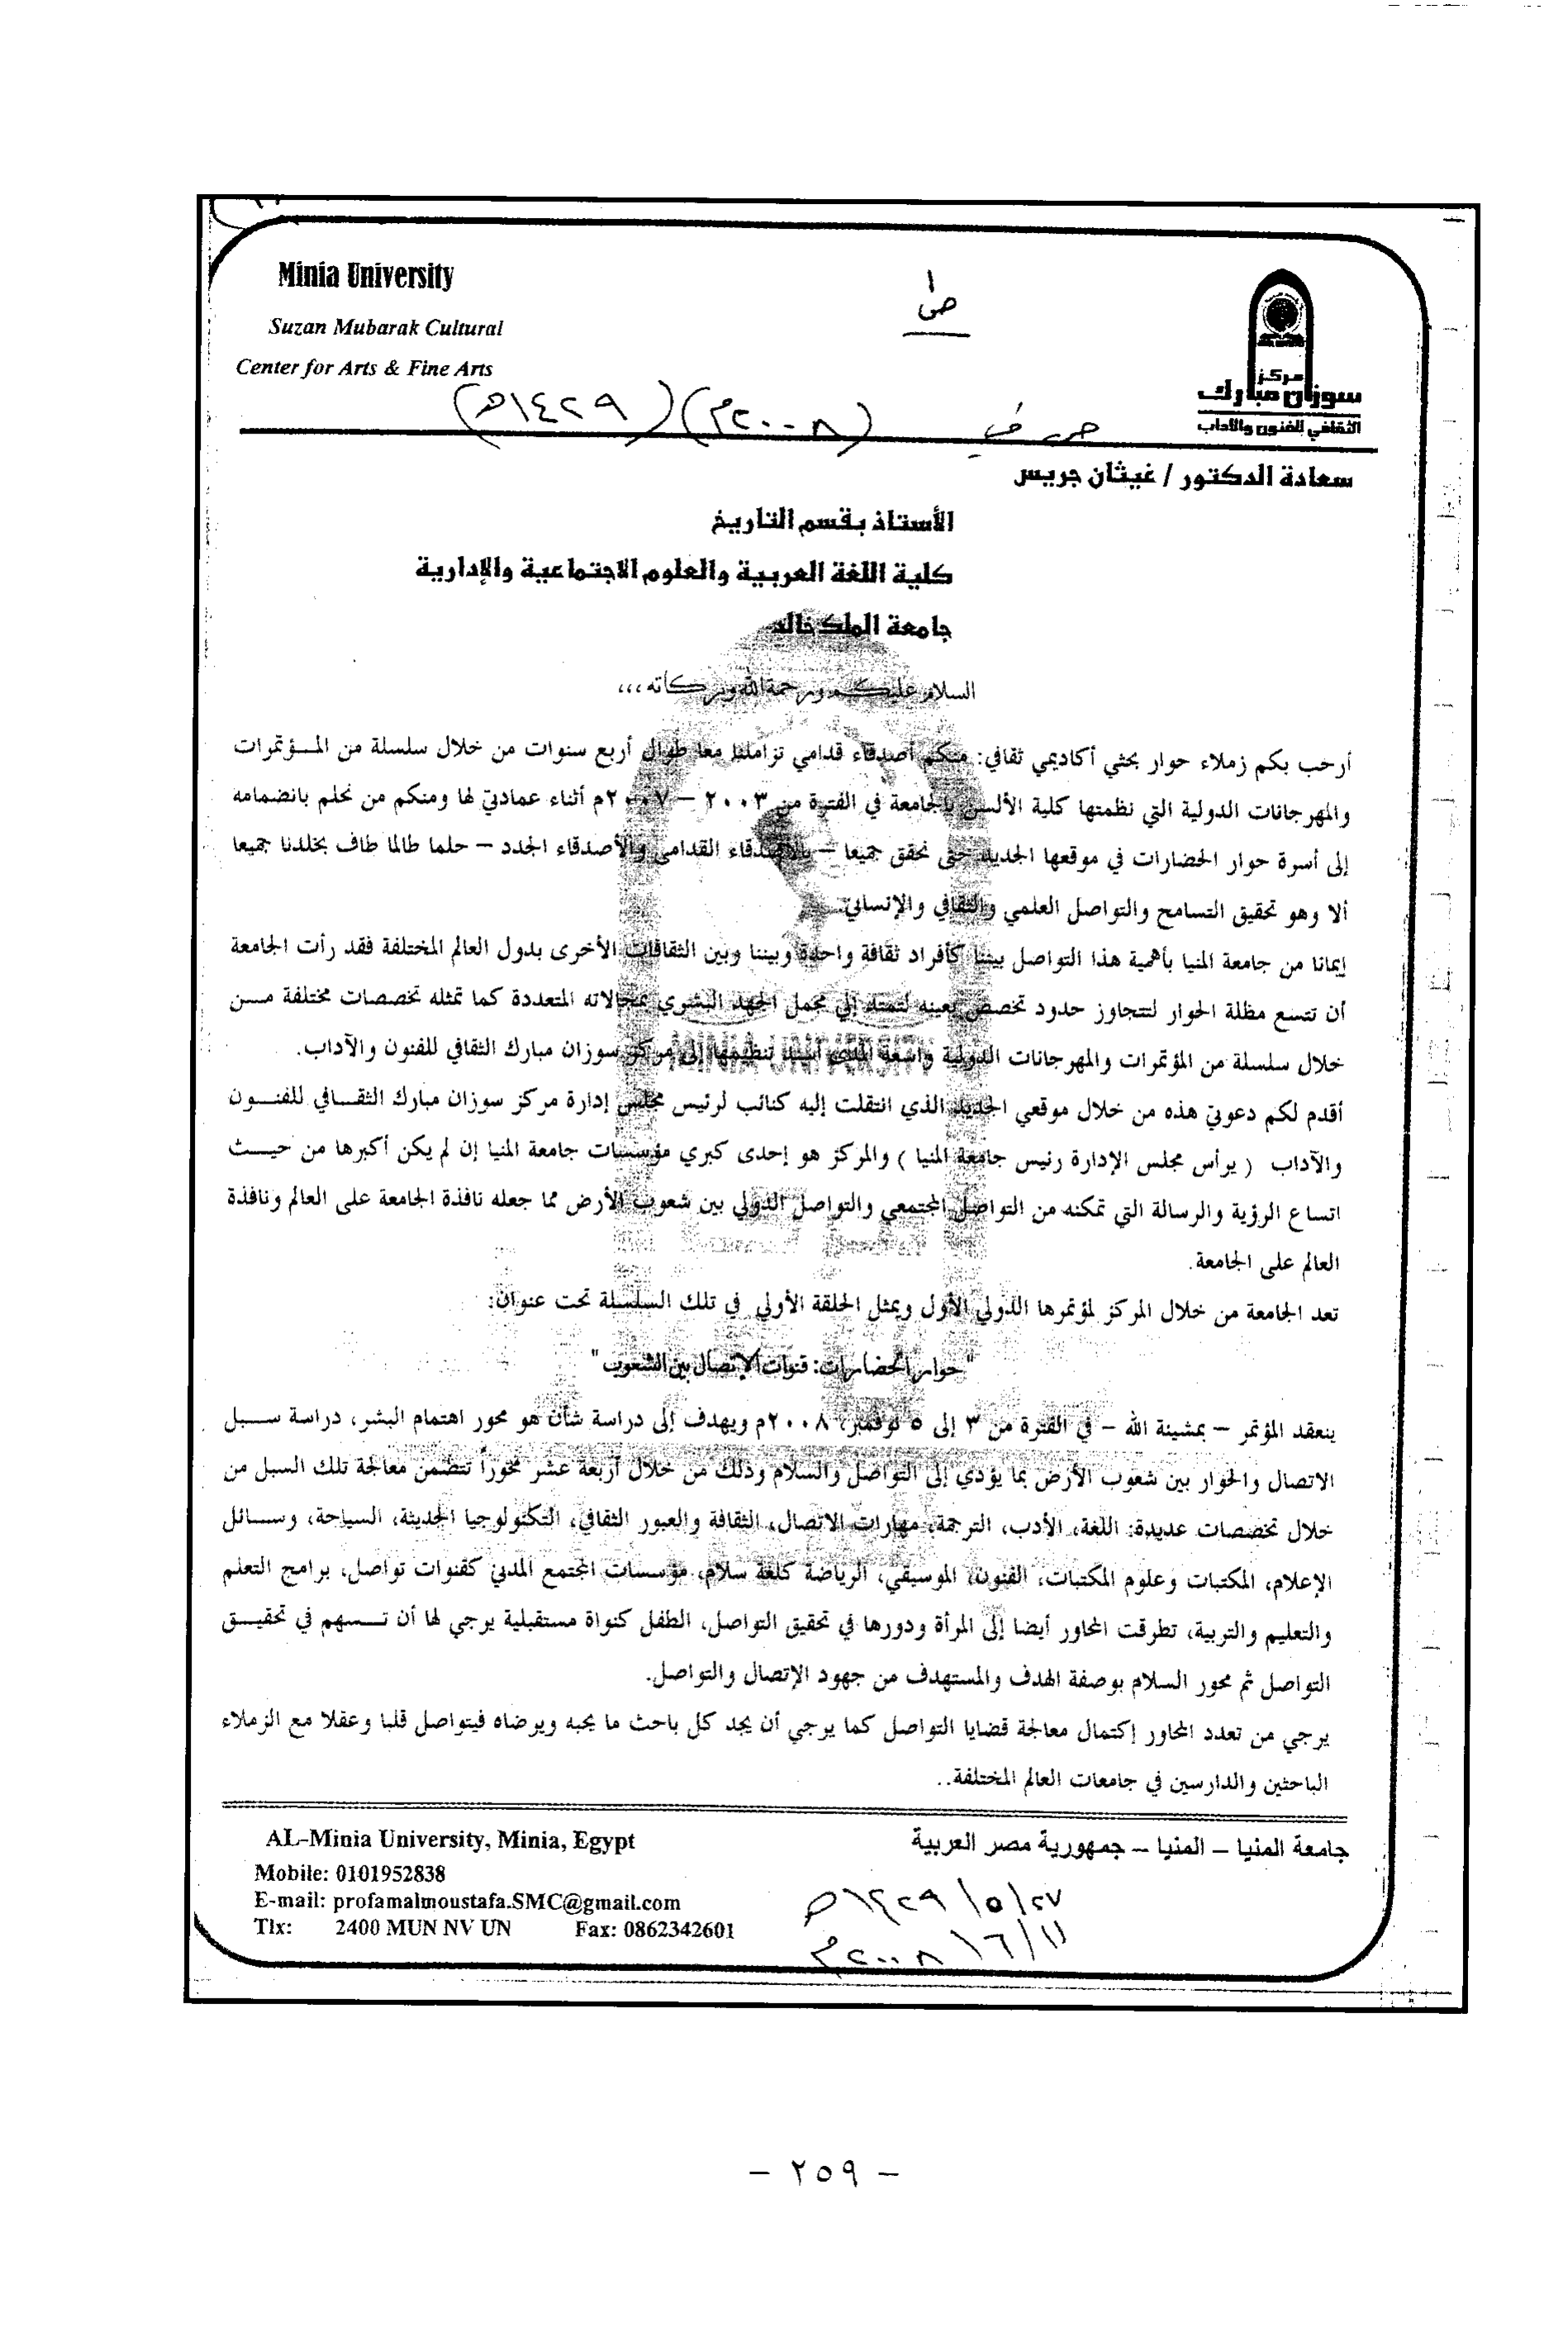 Minia University
Suzan Mubarak Cultural
Center for Arts & Fine Arts
مركز
سوزان مبارك
الثقافي للفنون والآداب
(٢٠٠٨م) (١٤٢٩هـ)
سعادة الدكتور / غيثان جريس
الأستاذ بقسم التاريخ
كلية اللغة العربية والعلوم الاجتماعية والإدارية
جامعة الملك خالد
السلام عليكم ورحمة الله وبركاته ،،،
أرحب بكم زملاء حوار بحثي أكاديمي ثقافي: منكم أصدقاء قدامي تزاملنا معا طوال أربع سنوات من خلال سلسلة من المؤتمرات
والمهرجانات الدولية التي نظمتها كلية الألسن بالجامعة في الفترة من ٢٠٠٣ – ٢٠٠٧م أثناء عمادتي لها ومنكم من نحلم بانضمامه
إلى أسرة حوار الحضارات في موقعها الجديد حتى نحقق جميعا – بالأصدقاء القدامى والأصدقاء الجدد – حلما طالما طاف بخلدنا جميعا
ألا وهو تحقيق التسامح والتواصل العلمي والثقافي والإنساني.
إيمانا من جامعة المنيا بأهمية هذا التواصل بيننا كأفراد ثقافة واحدة وبيننا وبين الثقافات الأخرى بدول العالم المختلفة فقد رأت الجامعة
أن تتسع مظلة الحوار لتتجاوز حدود تخصص بعينه لتمتد إلي مجمل الجهد البشري بمجالاته المتعددة كما تمثله تخصصات مختلفة من
خلال سلسلة من المؤتمرات والمهرجانات الدولية واسعة المدى أسند تنظيمها إلى مركز سوزان مبارك الثقافي للفنون والآداب.
أقدم لكم دعوتي هذه من خلال موقعي الجديد الذي انتقلت إليه كنائب لرئيس مجلس إدارة مركز سوزان مبارك الثقافي للفنون
والآداب ( يرأس مجلس الإدارة رئيس جامعة المنيا ) والمركز هو إحدى كبري مؤسسات جامعة المنيا إن لم يكن أكبرها من حيث
اتساع الرؤية والرسالة التي تمكنه من التواصل المجتمعي والتواصل الدولي بين شعوب الأرض مما جعله نافذة الجامعة على العالم ونافذة
العالم على الجامعة.
تعد الجامعة من خلال المركز لمؤتمرها الدولي الأول ويمثل الحلقة الأولي في تلك السلسلة تحت عنوان:
"حوار الحضارات: قنوات الإتصال بين الشعوب"
ينعقد المؤتمر – بمشيئة الله – في الفترة من ٣ إلى ٥ نوفمبر، ٢٠٠٨م ويهدف إلى دراسة شأن هو محور اهتمام البشر، دراسة سبل
الاتصال والحوار بين شعوب الأرض بما يؤدي إلى التواصل والسلام وذلك من خلال أربعة عشر محوراً تتضمن معالجة تلك السبل من
خلال تخصصات عديدة: اللغة، الأدب، الترجمة، مهارات الاتصال، الثقافة والعبور الثقافي، التكنولوجيا الحديثة، السياحة، وسائل
الإعلام، المكتبات وعلوم المكتبات، الفنون، الموسيقي، الرياضة كلغة سلام، مؤسسات المجتمع المدني كقنوات تواصل، برامج التعلم
والتعليم والتربية، تطرقت المحاور أيضا إلى المرأة ودورها في تحقيق التواصل، الطفل كنواة مستقبلية يرجي لها أن تسهم في تحقيق
التواصل ثم محور السلام بوصفة الهدف والمستهدف من جهود الإتصال والتواصل.
يرجي من تعدد المحاور إكتمال معالجة قضايا التواصل كما يرجي أن يجد كل باحث ما يحبه ويرضاه فيتواصل قلبا وعقلا مع الزملاء
الباحثين والدارسين في جامعات العالم المختلفة..
جامعة المنيا – المنيا – جمهورية مصر العربية
AL-Minia University, Minia, Egypt
Mobile: 0101952838
E-mail: profamalmoustafa.SMC@gmail.com
Tlx: 2400 MUN NV UN Fax: 0862342601
٢٧/٥/١٤٢٩هـ
١١/٦/٢٠٠٨م
– ٢٥٩ –